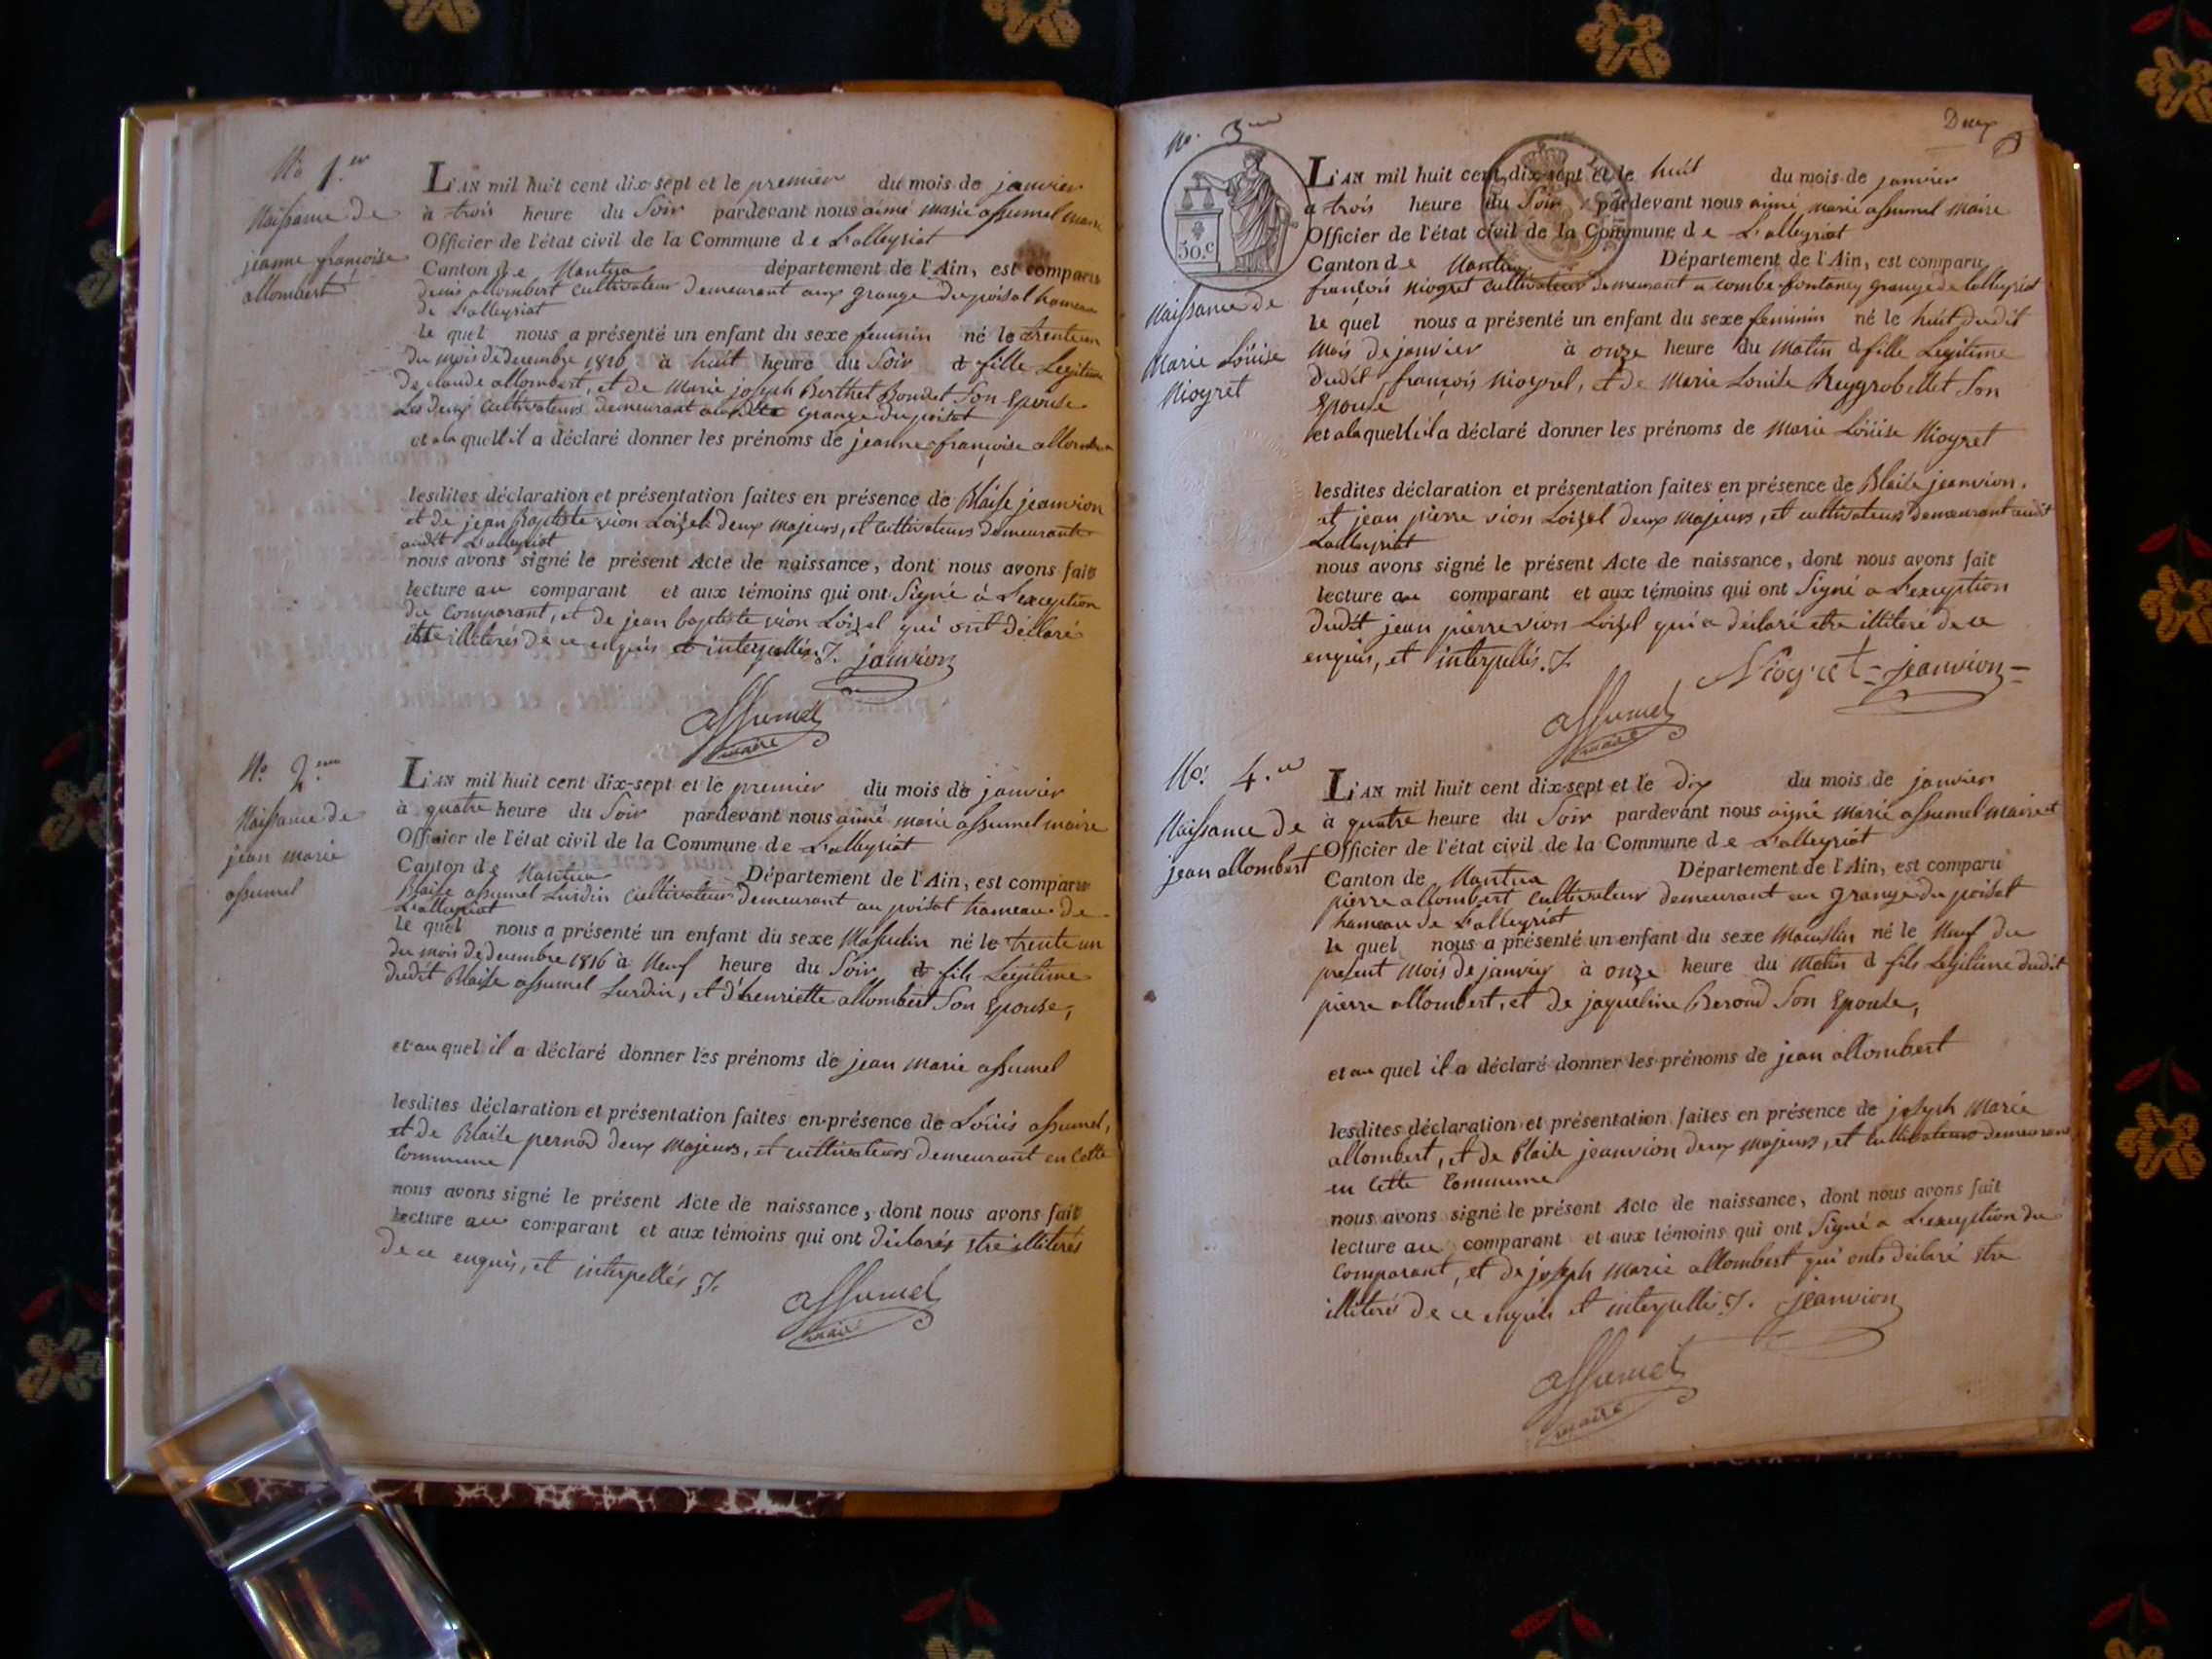 No 1.er
Naissance de
jeanne françoise
allombert
L'AN mil huit cent dix-sept et le premier du mois de janvier
à trois heure du Soir pardevant nous aimé marie assumel maire
Officier de l'état civil de la Commune de L'alleyriat
Canton de Nantua département de l'Ain, est comparu
denis allombert cultivateur demeurant aux grange du poisat hameau
de L'alleyriat
le quel nous a présenté un enfant du sexe feminin né le trente un
du mois de decembre 1816 à huit heure du Soir d fille Legitime
de claude allombert, et de Marie joseph Berthet Bondet Son Epouse
Les deux cultivateurs demeurant grange du poisat
et a la quelle il a déclaré donner les prénoms de jeanne françoise allombert
lesdites déclaration et présentation faites en présence de Blaise jeanvion
et de jean Baptiste vion Loizel deux majeurs, et cultivateurs demeurants
audit L'alleyriat
nous avons signé le présent Acte de naissance, dont nous avons fait
lecture au comparant et aux témoins qui ont Signé à L'exception
du Comparant, et de jean baptiste vion Loizel qui ont déclaré
être illiterés de ce enquis et interpellés. /.
janvion
assumel
maire
No 2.eme
Naissance de
jean marie
assumel
L'AN mil huit cent dix-sept et le premier du mois de janvier
à quatre heure du Soir pardevant nous aimé marie assumel maire
Officier de l'état civil de la Commune de L'alleyriat
Canton de Nantua Département de l'Ain, est comparu
Blaise assumel Surdin cultivateur demeurant au poisat hameau de
L'alleyriat
le quel nous a présenté un enfant du sexe Masculin né le trente un
du mois de decembre 1816 à Neuf heure du Soir d fils Legitime
dudit Blaise assumel Surdin, et d'henriette allombert Son Epouse,
et au quel il a déclaré donner les prénoms de jean marie assumel
lesdites déclaration et présentation faites en présence de Loüis assumel,
et de Blaise pernod deux majeurs, et cultivateurs demeurant en Cette
Commune
nous avons signé le présent Acte de naissance, dont nous avons fait
lecture au comparant et aux témoins qui ont déclarés etre illiterés
de ce enquis, et interpellés /.
assumel
maire
Deux
No. 3.eme
30.c
Naissance de
Marie Loüise
Niogret
L'AN mil huit cent dix-sept et le huit du mois de janvier
à trois heure du Soir pardevant nous aimé marie assumel maire
Officier de l'état civil de la Commune de L'alleyriat
Canton de Nantua Département de l'Ain, est comparu
françois Niogret cultivateur demeurant a combe fontaney grange de lalleyriat
le quel nous a présenté un enfant du sexe feminin né le huit dudit
Mois de janvier à onze heure du Matin d fille Legitime
dudit françois Niogret, et de Marie Louise Reygrobellet Son
Epouse
et a la quelle il a déclaré donner les prénoms de Marie Loüise Niogret
lesdites déclaration et présentation faites en présence de Blaise jeanvion,
et jean pierre vion Loizel deux majeurs, et cultivateurs demeurant audit
Lalleyriat
nous avons signé le présent Acte de naissance, dont nous avons fait
lecture au comparant et aux témoins qui ont Signé a L'exception
dudit jean pierre vion Loizel qui a déclaré etre illiteré de ce
enquis, et interpellés. /.
Niogret = jeanvion =
assumel
maire
No. 4.eme
Naissance de
jean allombert
L'AN mil huit cent dix-sept et le dix du mois de janvier
à quatre heure du Soir pardevant nous aimé marie assumel maire et
Officier de l'état civil de la Commune de L'alleyriat
Canton de Nantua Département de l'Ain, est comparu
pierre allombert cultivateur demeurant au grange du poisat
hameau de L'alleyriat
le quel nous a présenté un enfant du sexe né le Neuf du
present Mois de janvier à onze heure du Matin d fils Legitime dudit
pierre allombert, et de jaqueline Beroud Son Epouse,
et au quel il a déclaré donner les prénoms de jean allombert
lesdites déclaration et présentation faites en présence de joseph Marie
allombert, et de Blaise jeanvion deux majeurs, et cultivateurs demeurant
en Cette Commune
nous avons signé le présent Acte de naissance, dont nous avons fait
lecture au comparant et aux témoins qui ont Signé a L'exception du
Comparant, et de joseph Marie allombert qui onts déclaré etre
illiterés de ce enquis et interpellés. /.
jeanvion
assumel
maire